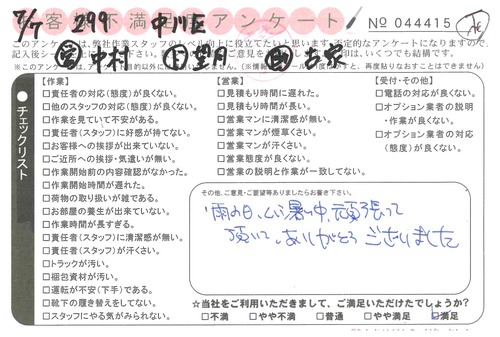 7/7 299 中川区
お客様不満足度アンケート! No 044415
㊧ 中村 ① 望月 ㊗ 古家
このアンケートは、弊社作業スタッフのレベル向上に役立てたいと思います。否定的なアンケートになりますので、
チェックリスト
【作業】
□責任者の対応(態度)が良くない。
□他のスタッフの対応(態度)が良くない。
□作業を見ていて不安がある。
□責任者(スタッフ)に好感が持てない。
□お客様への挨拶が出来ていない。
□ご近所への挨拶・気遣いが無い。
□作業開始前の内容確認がなかった。
□作業開始時間が遅れた。
□荷物の取り扱いが雑である。
□お部屋の養生が出来ていない。
□作業時間が長すぎる。
□責任者(スタッフ)に清潔感が無い。
□責任者(スタッフ)が汗くさい。
□トラックが汚い。
□梱包資材が汚い。
□運転が不安(下手)である。
□靴下の履き替えをしてない。
□スタッフにやる気がみられない。
【営業】
□見積もり時間に遅れた。
□見積もり時間が長い。
□営業マンに清潔感が無い。
□営業マンが煙草くさい。
□営業マンが汗くさい。
□営業態度が良くない。
□営業の説明と作業が一致してない。
【受付・その他】
□電話の対応が良くない。
□オプション業者の説明
・作業が良くない。
□オプション業者の対応
(態度)が良くない。
その他、ご意見・ご要望等ありましたらお書き下さい。
雨の日、という暑い中、頑張って
頂いて、ありがとうございました
☆当社をご利用いただきまして、ご満足いただけたでしょうか?
□不満 □やや不満 □普通 □やや満足 □満足